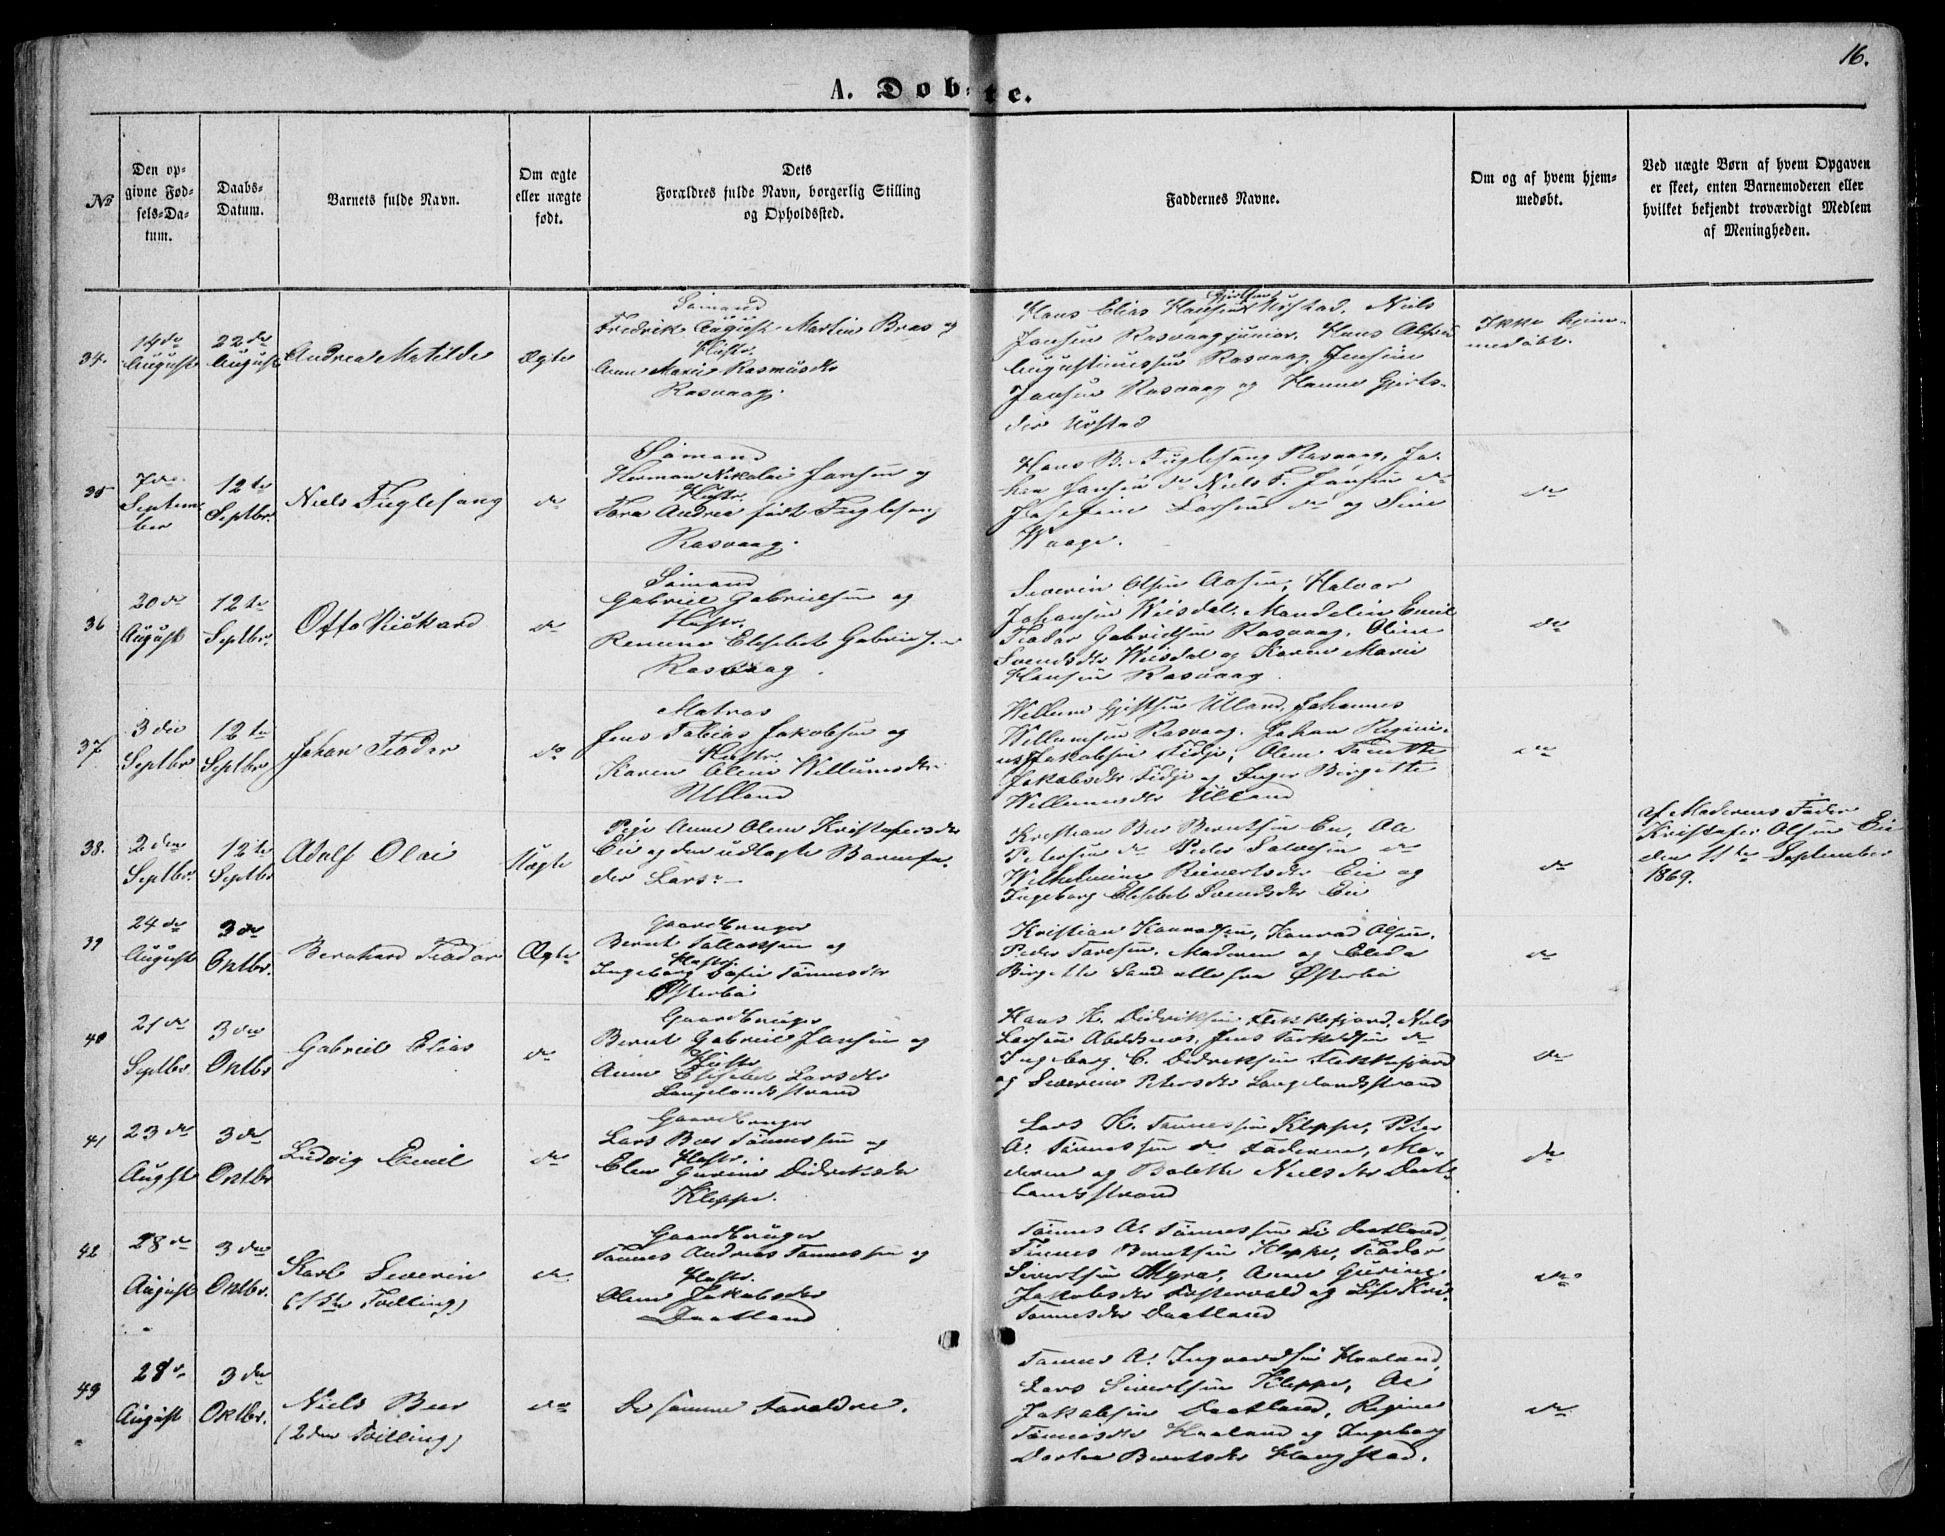 16.
A. Døbte.
No
Den opgivne Fødsels-Datum.
Daabs-Datum.
Barnets fulde Navn.
Om ægte eller uægte født.
Dets Forældres fulde Navn, borgerlig Stilling og Opholdssted.
Faddernes Navne.
Om og af hvem hjemmedøbt.
Ved uægte Børn af hvem Opgaven er skeet, enten Barnemoderen eller hvilket bekjendt troværdigt Medlem af Menigheden.
34.
14de August
22de August
Andrea Matilde
Ægte
Sømand
Fredrik August Martin Braas og
Hustr.
Anne Marie Rasmusdtr
Rasvaag.
Hans Elias Hansen Udstad, Niels
Jansen Rasvaag junior, Hans
Augustinussen Rasvaag,
Jansen Rasvaag og Hanne Gjerts-
dtr Udstad
Ikke hjem-
medøbt.
35
7de September
12te Septbr.
Niels Fuglesang
do
Sømand
Herman Nikolai Jansen og
Hustr.
Tora Andrea født Fuglesang
Rasvaag.
Hans B. Fuglesang Rasvaag, Jo-
han Jansen do Niels F. Jansen do
Josefine Larsen do og Sine
Waage.
do
36
20de August
12te Septbr.
Otto Rickard
do
Sømand
Gabriel Gabrielsen og
Hustr.
Elisebet Gabrielsen
Rasvaag.
Severin Olsen Aasen, Halvor
Johansen Veisdal, Mandelin Emil
Teodor Gabrielsen Rasvaag, Oline
Svendsdtr Veisdal og Karen Marie
Hansen Rasvaag
do
37
3die Septbr
12te Septbr
Johan Teodor
do
Matros
Jens Tobias Jakobsen og
Hustr.
Karen Olene Willumsdtr
Ulland
Willum Gjertsen Ulland, Johannes
Willumsen Rasvaag, Johan Regini-
us Jakobsen Fidje, Olene Tonette
Jakobsdtr Fidje og Inger Birgitte
Willumsdtr Ulland
do
38.
2den Septbr.
12te Septbr
Adolf Olai
Uægte
Pige Anne Olene Kristofersdtr
Eie og den udlagte Barnefa-
der Lars
Kristian Ber Berntsen Eie, Ole
Petersen do Peder Salvesen do
Wilhelmine Reinertsdtr Eie og
Ingeborg Elisebet Svendsdtr Eie
do
af Moderens Fader
Kristofer Olsen Eie
den 11te September
1869.
39
24de August
3de Oktbr.
Bernhard Teodor
Ægte
Gaardbruger
Bernt Tallaksen og
Hustr.
Ingeborg Sofie Tønnesdtr
Østerbø
Kristian Konradsen, Konrad Olsen,
Peder Taresen, Moderen og Eleda
Birgitte Sand alle fra Østerbø
do
40
21de Septbr
3die Oktbr
Gabriel Elias
do
Gaardbruger
Bernt Gabriel Jansen og
Hustr.
Anne Elisebet Larsdtr
Langelandsstrand
Hans K. Didriksen Flekkefjord, Niels
Larsen Abelsnes, Jens Torkeldsen do
Ingeborg C. Didriksen Flekkefjord
og Severine Petersdtr Langelandsstrand
do
41
23de Augst
3de Oktbr
Ludvig Emil
do
Gaardbruger
Lars Ber Tønnessen og
Hustr.
Elen Gurine Didriksdtr
Kleppe.
Lars K. Tønnessen Kleppe, Peter
A. Tønnessen do Faderen, Mo-
deren og Bolette Nielsdtr Daat-
landsstrand
do
42
28de August
3die Oktbr.
Karl Severin
(1ste Tvilling)
do
Gaardbruger
Tønnes Andreas Tønnessen og
Hustr.
Olene Jakobsdtr
Daatland
Tønnes A. Tønnessen Daatland,
Tønnes Berntsen Kleppe, Teodor
Sivertsen Myra, Anne Gurine
Jakobsdtr og Lise Kri.
Tønnesdtr Daatland
do
43
28de August
3die Oktbr.
Niels Beer
(2den Tvilling)
do
De samme Forældre.
Tønnes A. Ingvardsen Haaland,
Lars Sivertsen Kleppe, Ole
Jakobsen Daatland, Regine
Tønnesdtr Haaland og Ingeborg
Dortea Berntsdtr Haugstad.
do